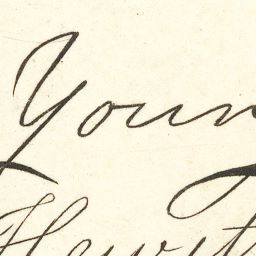 Youn
Hewit